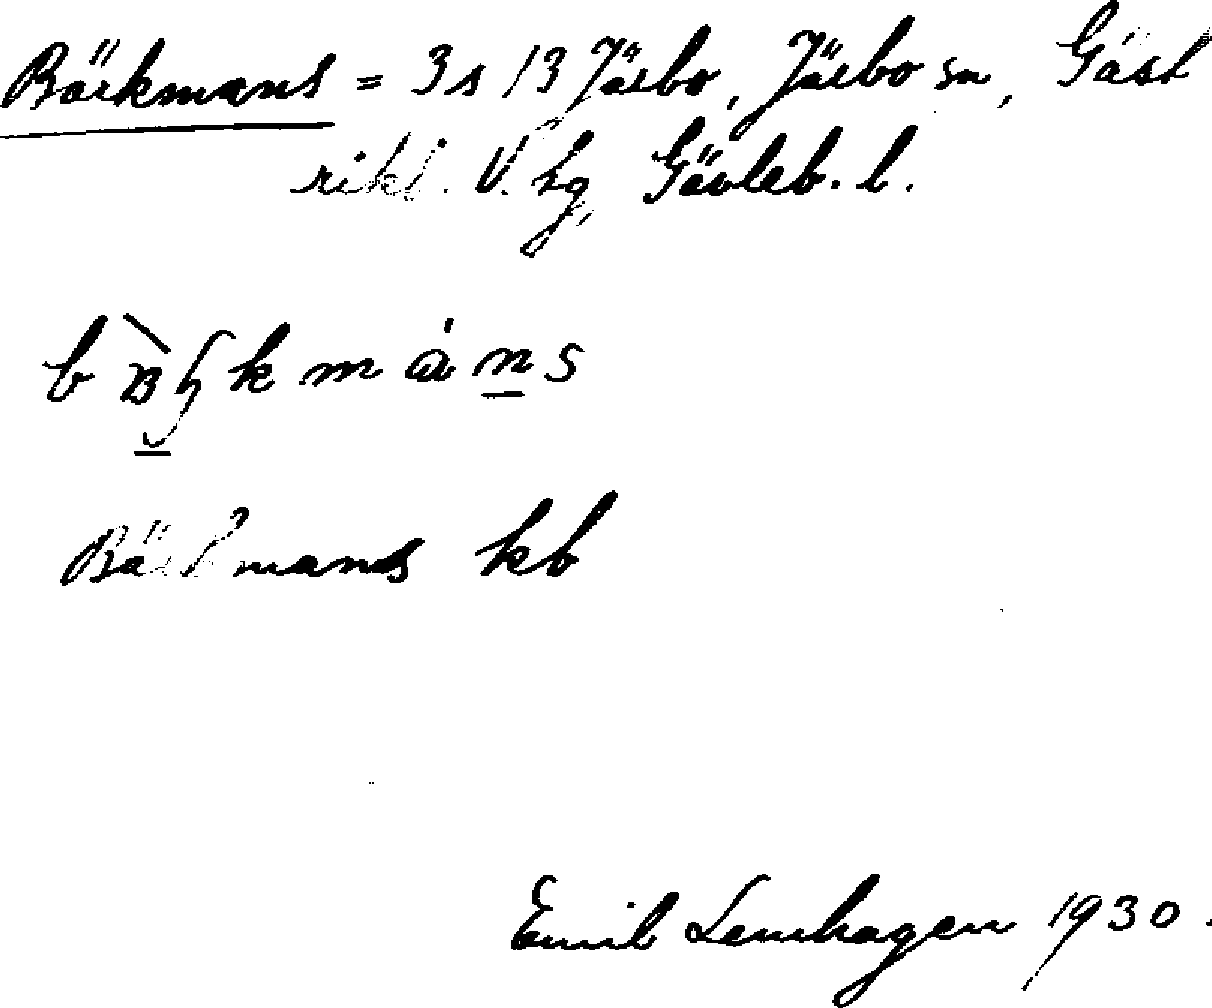 Bärkmans = 3s 13 Järbo, Järbo sn, Gäst
rikl. V. hg, Gävleb. l.
Bärkmans kb
Emil Lenhagen 1930.